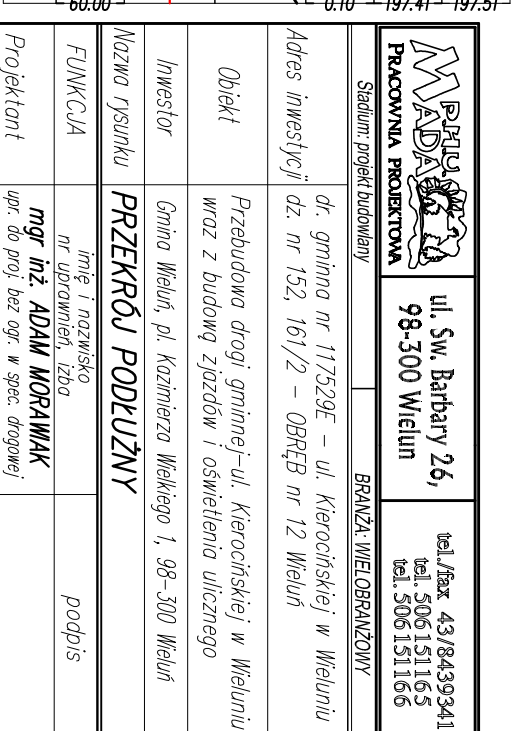 60.00
0.10 197.41 197.51
P.H.U.
MADA
PRACOWNIA PROJEKTOWA
ul. Św. Barbary 26,
98-300 Wieluń
tel./fax 43/8439341
tel. 506151165
tel. 506151166
Stadium: projekt budowlany
BRANŻA: WIELOBRANŻOWY
Adres inwestycji
dr. gminna nr 117529E – ul. Kierocińskiej w Wieluniu
dz. nr 152, 161/2 – OBRĘB nr 12 Wieluń
Obiekt
Przebudowa drogi gminnej-ul. Kierocińskiej w Wieluniu
wraz z budową zjazdów i oświetlenia ulicznego
Inwestor
Gmina Wieluń, pl. Kazimierza Wielkiego 1, 98-300 Wieluń
Nazwa rysunku
PRZEKRÓJ PODŁUŻNY
FUNKCJA
imię i nazwisko
nr uprawnień, izba
podpis
Projektant
mgr inż. ADAM MORAWIAK
upr. do proj. bez ogr. w spec. drogowej